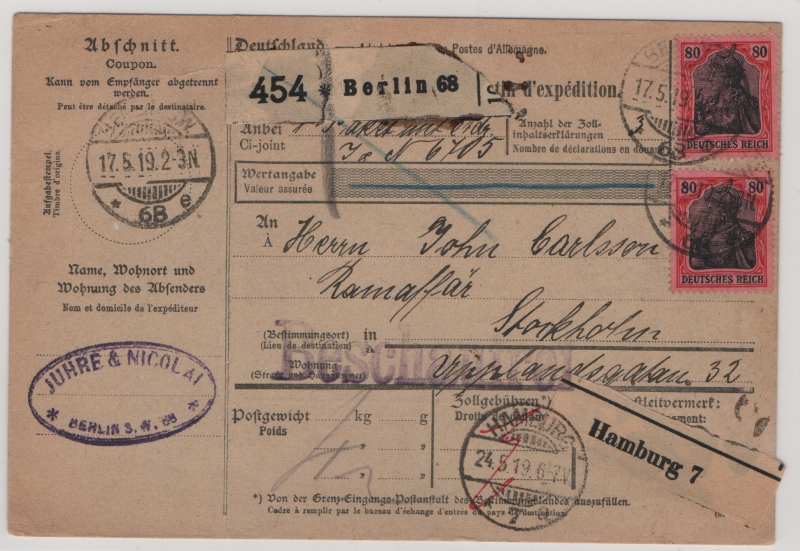 Abschnitt.
Coupon.
Kann vom Empfänger abgetrennt
werden.
Peut être détaché par le destinataire.
Aufgabestempel.
Timbre d'origine.
17.5.19.2-3N.
* 6B e
Name, Wohnort und
Wohnung des Absenders
Nom et domicile de l'expéditeur
JUHRE & NICOLAI
* BERLIN S.W. 68 *
Deutschland
Postes d'Allemagne.
454 * Berlin 68
d'expédition.
Anbei
Ci-joint
J & N 6705
Anzahl der Zoll-
inhaltserklärungen
Nombre de déclarations en douane
3
Wertangabe
Valeur assurée
80 80
DEUTSCHES REICH
17.5.19
80 80
DEUTSCHES REICH
An
À
Herrn John Carlsson
Ramaffär
(Bestimmungsort) in
(Lieu de destination)
Stockholm
Wohnung
(Straße und Hausnummer)
Upplandsgatan 32
Postgewicht kg g
Poids
Zollgebühren*)
Droits de douane
Leitvermerk:
Hamburg 7
HAMBURG
24.5.19.6-7N
7
*) Von der Grenz-Eingangs-Postanstalt des Bestimmungslandes auszufüllen.
Cadre à remplir par le bureau d'échange d'entrée du pays de destination.